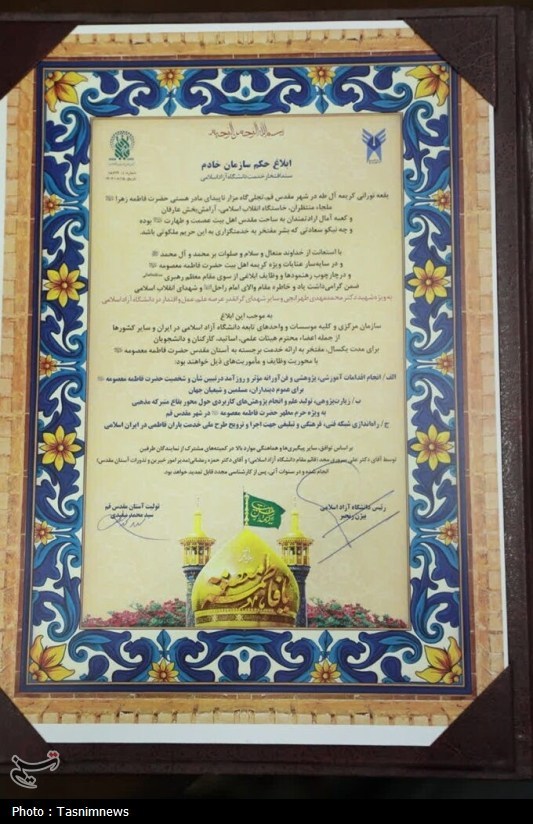 بسم الله الرحمن الرحیم
ابلاغ حکم سازمان خادم
سند افتخار خدمت دانشگاه آزاد اسلامی
بقعه نورانی کریمه آل طه در شهر مقدس قم، تجلی‌گاه مزار ناپیدای مادر هستی حضرت فاطمه زهرا
ملجاء منتظران، خاستگاه انقلاب اسلامی، آرامش‌بخش عارفان
و کعبه آمال ارادتمندان به ساحت مقدس اهل بیت عصمت و طهارت بوده
و چه نیکو سعادتی که بشر مفتخر به خدمتگزاری به این حریم ملکوتی باشد.
با استعانت از خداوند متعال و سلام و صلوات بر محمد و آل محمد
و در سایه‌سار عنایات ویژه کریمه اهل بیت حضرت فاطمه معصومه
و در چارچوب رهنمودها و وظایف ابلاغی از سوی مقام معظم رهبری
ضمن گرامی‌داشت یاد و خاطره مقام والای امام راحل و شهدای انقلاب اسلامی
به ویژه شهید دکتر محمدمهدی طهرانچی و سایر شهدای گرانقدر عرصه علم، عمل و اقتدار در دانشگاه آزاد اسلامی
به موجب این ابلاغ
سازمان مرکزی و کلیه موسسات و واحدهای تابعه دانشگاه آزاد اسلامی در ایران و سایر کشورها
از جمله اعضاء محترم هیئات علمی، اساتید، کارکنان و دانشجویان
برای مدت یکسال، مفتخر به ارائه خدمت برجسته به آستان مقدس حضرت فاطمه معصومه
با محوریت وظایف و مأموریت‌های ذیل خواهند بود:
الف/ انجام اقدامات آموزشی، پژوهشی و فن‌آورانه مؤثر و روزآمد در تبیین شأن و شخصیت حضرت فاطمه معصومه
برای عموم دینداران، مسلمین و شیعیان جهان
ب/ زیارت‌پژوهی، تولید علم و انجام پژوهش‌های کاربردی حول محور بقاع متبرکه مذهبی
به ویژه حرم مطهر حضرت فاطمه معصومه در شهر مقدس قم
ج/ راه‌اندازی شبکه فنی، فرهنگی و تبلیغی جهت اجرا و ترویج طرح ملی خدمت یاران فاطمی در ایران اسلامی
بر اساس توافق، سایر پیگیری‌ها و هماهنگی موارد بالا در کمیته‌های مشترک از نمایندگان طرفین
توسط آقای دکتر علی سروری مجد (قائم مقام دانشگاه آزاد اسلامی) و آقای دکتر حمزه رمضانی (مدیر امور خیرین و نذورات آستان مقدس)
انجام شده و در سنوات آتی، پس از کارشناسی مجدد قابل تمدید خواهد بود.
رئیس دانشگاه آزاد اسلامی
بیژن رنجبر
تولیت آستان مقدس قم
سید محمد سعیدی
یا فاطمة
تسنیم
Photo : Tasnimnews